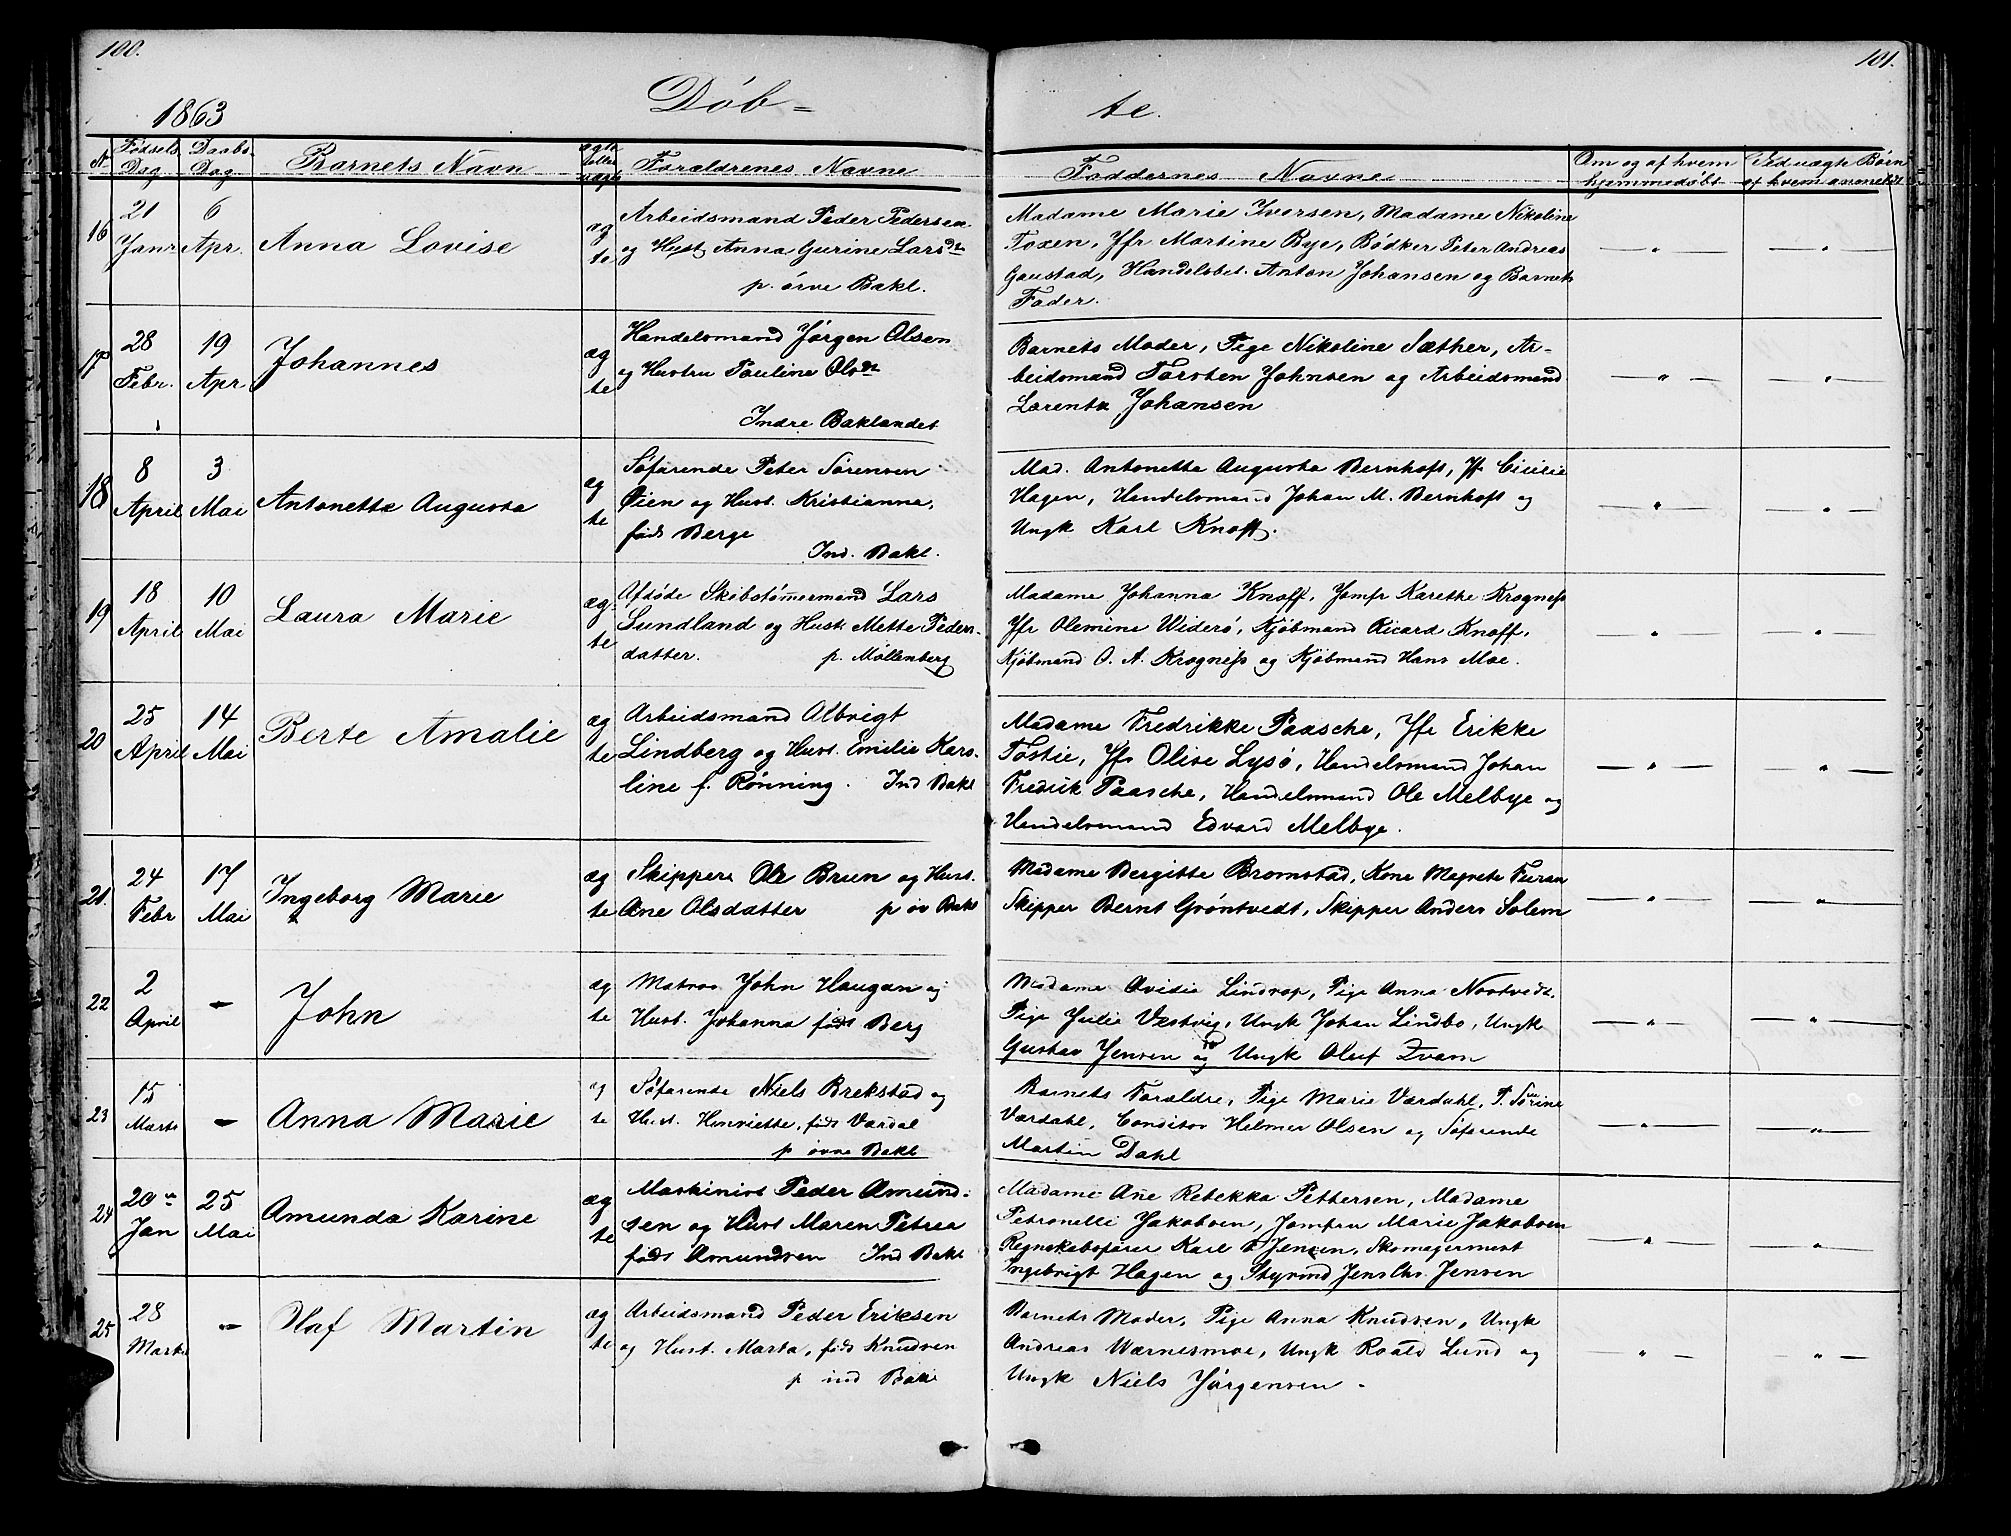 100.
101.
1863
Døb-
te.
Nr
Fødsels Dag
Daabs Dag
Barnets Navn
ægte
eller
uægte
Forældrenes Navne
Faddernes Navne
Om og af hvem
hjemmedøbt
Ved uægte Børn
af hvem anmeldt
16
21
Janr
6
Apr.
Anna Lovise
æg
te
Arbeidsmand Peder Pedersen
og Hust. Anna Gurine Larsdtr
p. øvre Bakl.
Madame Marie Iversen, Madame Nikoline
Foxen, Jfr Martine Bye, Bødker Peter Andreas
Gaustad, Handelsbet. Anton Johansen og Barnets
Fader.
17
28
Febr.
19
Apr
Johannes
æg
te
Handelsmand Jørgen Olsen
og Hustru Pauline Olsdtr
Indre Baklandet
Barnets Moder, Pige Nikoline Sæther, Ar-
beidsmand Torsten Johnsen og Arbeidsmand
Lorentz Johansen
18
8
April
3
Mai
Antonette Augusta
æg
te
Søfarende Peter Sørensen
Øien og Hust. Kristianna,
føds Berge
Ind. Bakl.
Mad. Antonette Augusta Bernhoft, Jf. Cicilie
Hagen, Handelsmand Johan M. Bernhoft og
Ungk Karl Knoff.
19
18
April
10
Mai
Laura Marie
æg-
te
Afdøde Skibstømmermand Lars
Sundland og Hust. Mette Peders-
datter. p. Møllenberg
Madame Johanna Knoff, Jomfr Karethe Krogness
Jfr Olemine Widerø, Kjøbmand Ricard Knoff,
Kjøbmand O. A. Krogness og Kjøbmand Hans Moe.
20
25
April
14
Mai
Berte Amalie
æg
te
Arbeidsmand Albrigt
Lindberg og Hust. Emilie Karo-
line f. Rønning. Ind Bakl
Madame Fredrikke Paasche, Jfr Erikke
Tostie, Jfr Olive Lysø, Handelsmand Johan
Fredrik Paasche, Handelsmand Ole Melbye og
Handelsmand Edvard Melbye.
21.
24
Febr
17
Mai
Ingeborg Marie
æg
te
Skippere Ole Brun og Hust.
Ane Olsdatter p øv Bakl
Madame Bergitte Bromstad, Kone Magrete Furan
Skipper Bernt Grøntvedt, Skipper Anders Solem
22
2
April
-
John
æg
te
Matros John Haugan og
Hust. Johanna føds Berg
Madame Avidia Lindrop, Pige Anna Nostvedt,
Pige Julie Vestvig, Ungk Johan Lindbo, Ungk
Gustav Jensen og Ungk Oluf Zvam
23
15
Marts
-
Anna Marie
æg
te
Søfarende Niels Brekstad og
Hust. Henriette, føds Værdal
p øvre Bakl
Barnets Forældre, Pige Marie Værdahl, P. Sørine
Værdahl, Conditor Helmer Olsen og Søfarende
Martin Dahl
24
20
Jan
25
Mai
Amunda Karine
æg
te
Maskinist Peder Amund-
sen og Hust Maren Petrea
føds Amundsen Ind Bakl
Madame Ane Rebekka Pettersen, Madame
Petronelli Jakobsen, Jomfru Marie Jakobsen
Regnskabsfører Karl Jensen, Skomagermest
Ingebrigt Hagen og Styrmd Jens Chr. Jensen
25
28
Marts
-
Olaf Martin
æg
te
Arbeidsmand Peder Eriksen
og Hust. Marta, føds Knudsen
p ind Bakl
Barnets Moder, Pige Anna Knudsen, Ungk
Andreas Wærnesmoe, Ungk Roald Lund og
Ungk Niels Jørgensen -